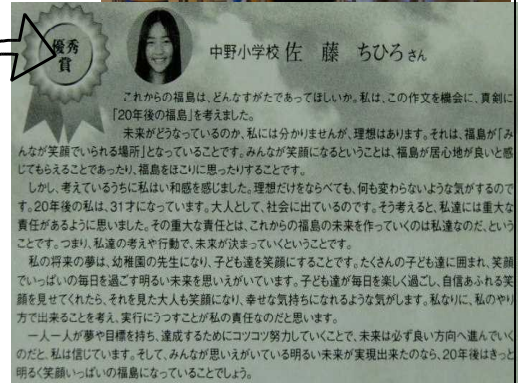 優秀
賞
中野小学校 佐 藤 ちひろ さん
これからの福島は、どんなすがたであってほしいか。私は、この作文を機会に、真剣に
「20年後の福島」を考えました。
未来がどうなっているのか、私には分かりませんが、理想はあります。それは、福島が「み
んなが笑顔でいられる場所」となっていることです。みんなが笑顔になるということは、福島が居心地が良いと感
じてもらえることであったり、福島をほこりに思ったりすることです。
しかし、考えているうちに私はい和感を感じました。理想だけをならべても、何も変わらないような気がするので
す。20年後の私は、31才になっています。大人として、社会に出ているのです。そう考えると、私達には重大な
責任があるように思いました。その重大な責任とは、これからの福島の未来を作っていくのは私達なのだ、という
ことです。つまり、私達の考えや行動で、未来が決まっていくということです。
私の将来の夢は、幼稚園の先生になり、子ども達を笑顔にすることです。たくさんの子ども達に囲まれ、笑顔
でいっぱいの毎日を過ごす明るい未来を思いえがいています。子ども達が毎日を楽しく過ごし、自信あふれる笑
顔を見せてくれたら、それを見た大人も笑顔になり、幸せな気持ちになれるような気がします。私なりに、私のやり
方で出来ることを考え、実行にうつすことが私の責任なのだと思います。
一人一人が夢や目標を持ち、達成するためにコツコツ努力していくことで、未来は必ず良い方向へ進んでいく
のだと、私は信じています。そして、みんなが思いえがいている明るい未来が実現出来たのなら、20年後はきっと
明るく笑顔いっぱいの福島になっていることでしょう。